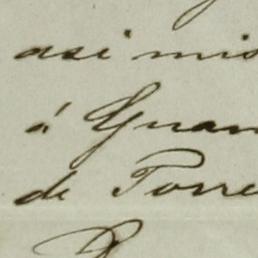 asi mis
á Guan
de Torre